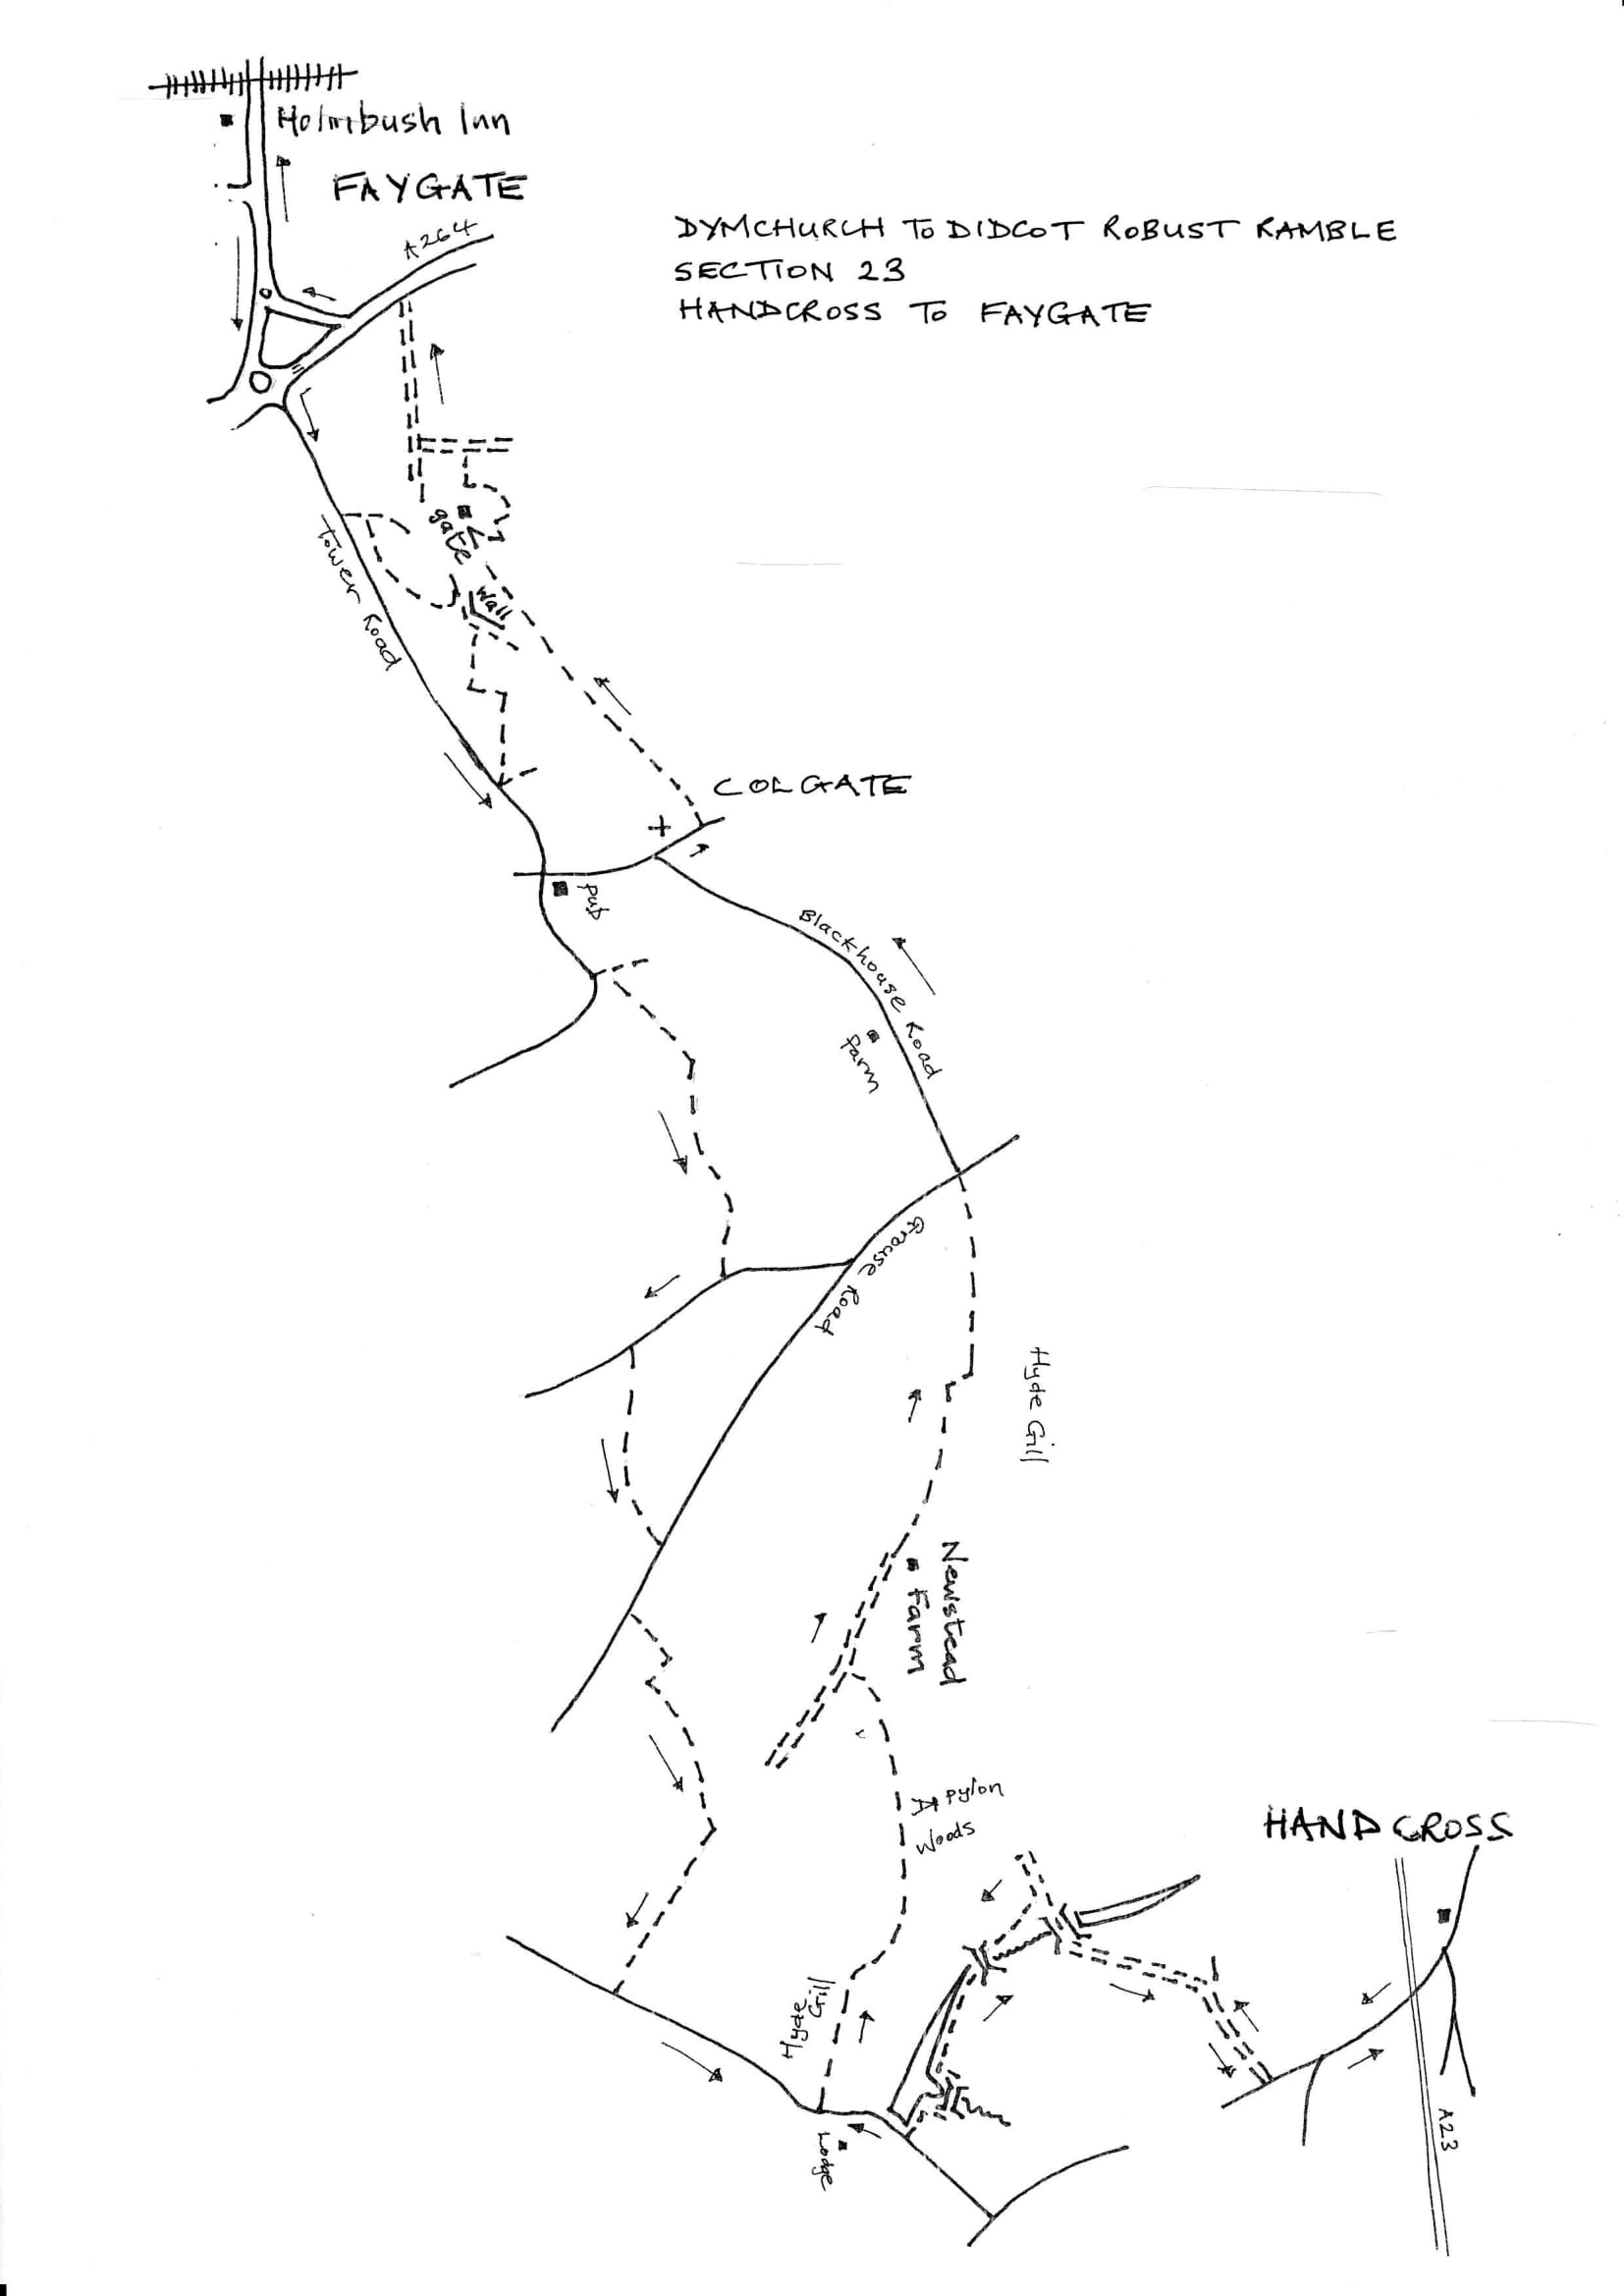 Holmbush Inn
FAYGATE
A264
DYMCHURCH TO DIDCOT ROBUST RAMBLE
SECTION 23
HANDCROSS TO FAYGATE
gate
Tower Road
Wall
COLGATE
Pub
Blackhouse Road
farm
Grouse Road
Hyde Gill
Newstead
Farm
pylon
Woods
HANDCROSS
Hyde
Gill
Lodge
A23